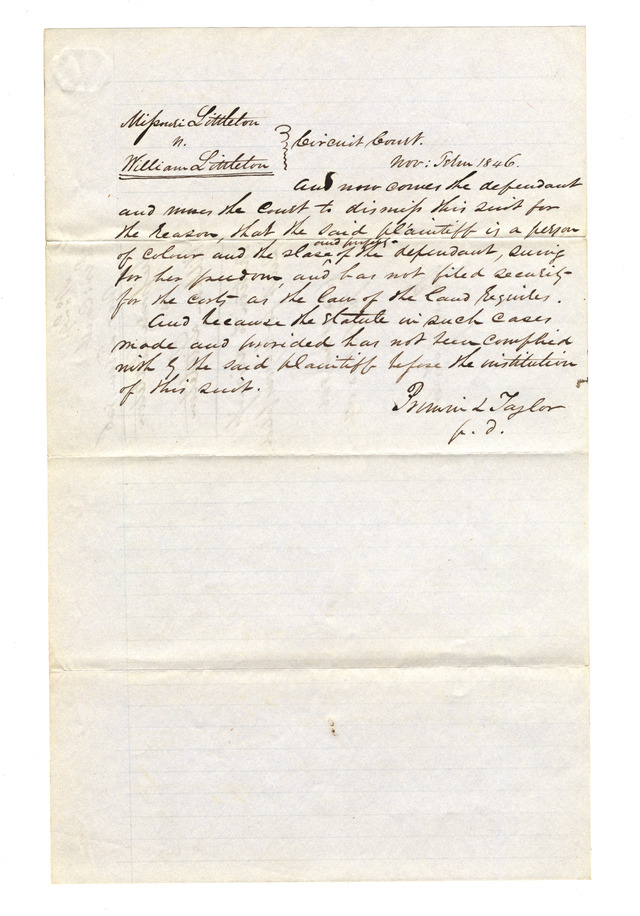 Missouri Littleton
v.
William Littleton
Circuit Court.
Nov: Term 1846.
And now comes the defendant
and moves the Court to dismiss this suit for
the reason, that the said plaintiff is a person
of colour and the slave and property of the defendant, suing
for her freedom, and has not filed security
for the costs as the law of the land requires.
And because the Statute in such cases
made and provided has not been complied
with by the said plaintiff before the institution
of this suit.
& Taylor
p. d.